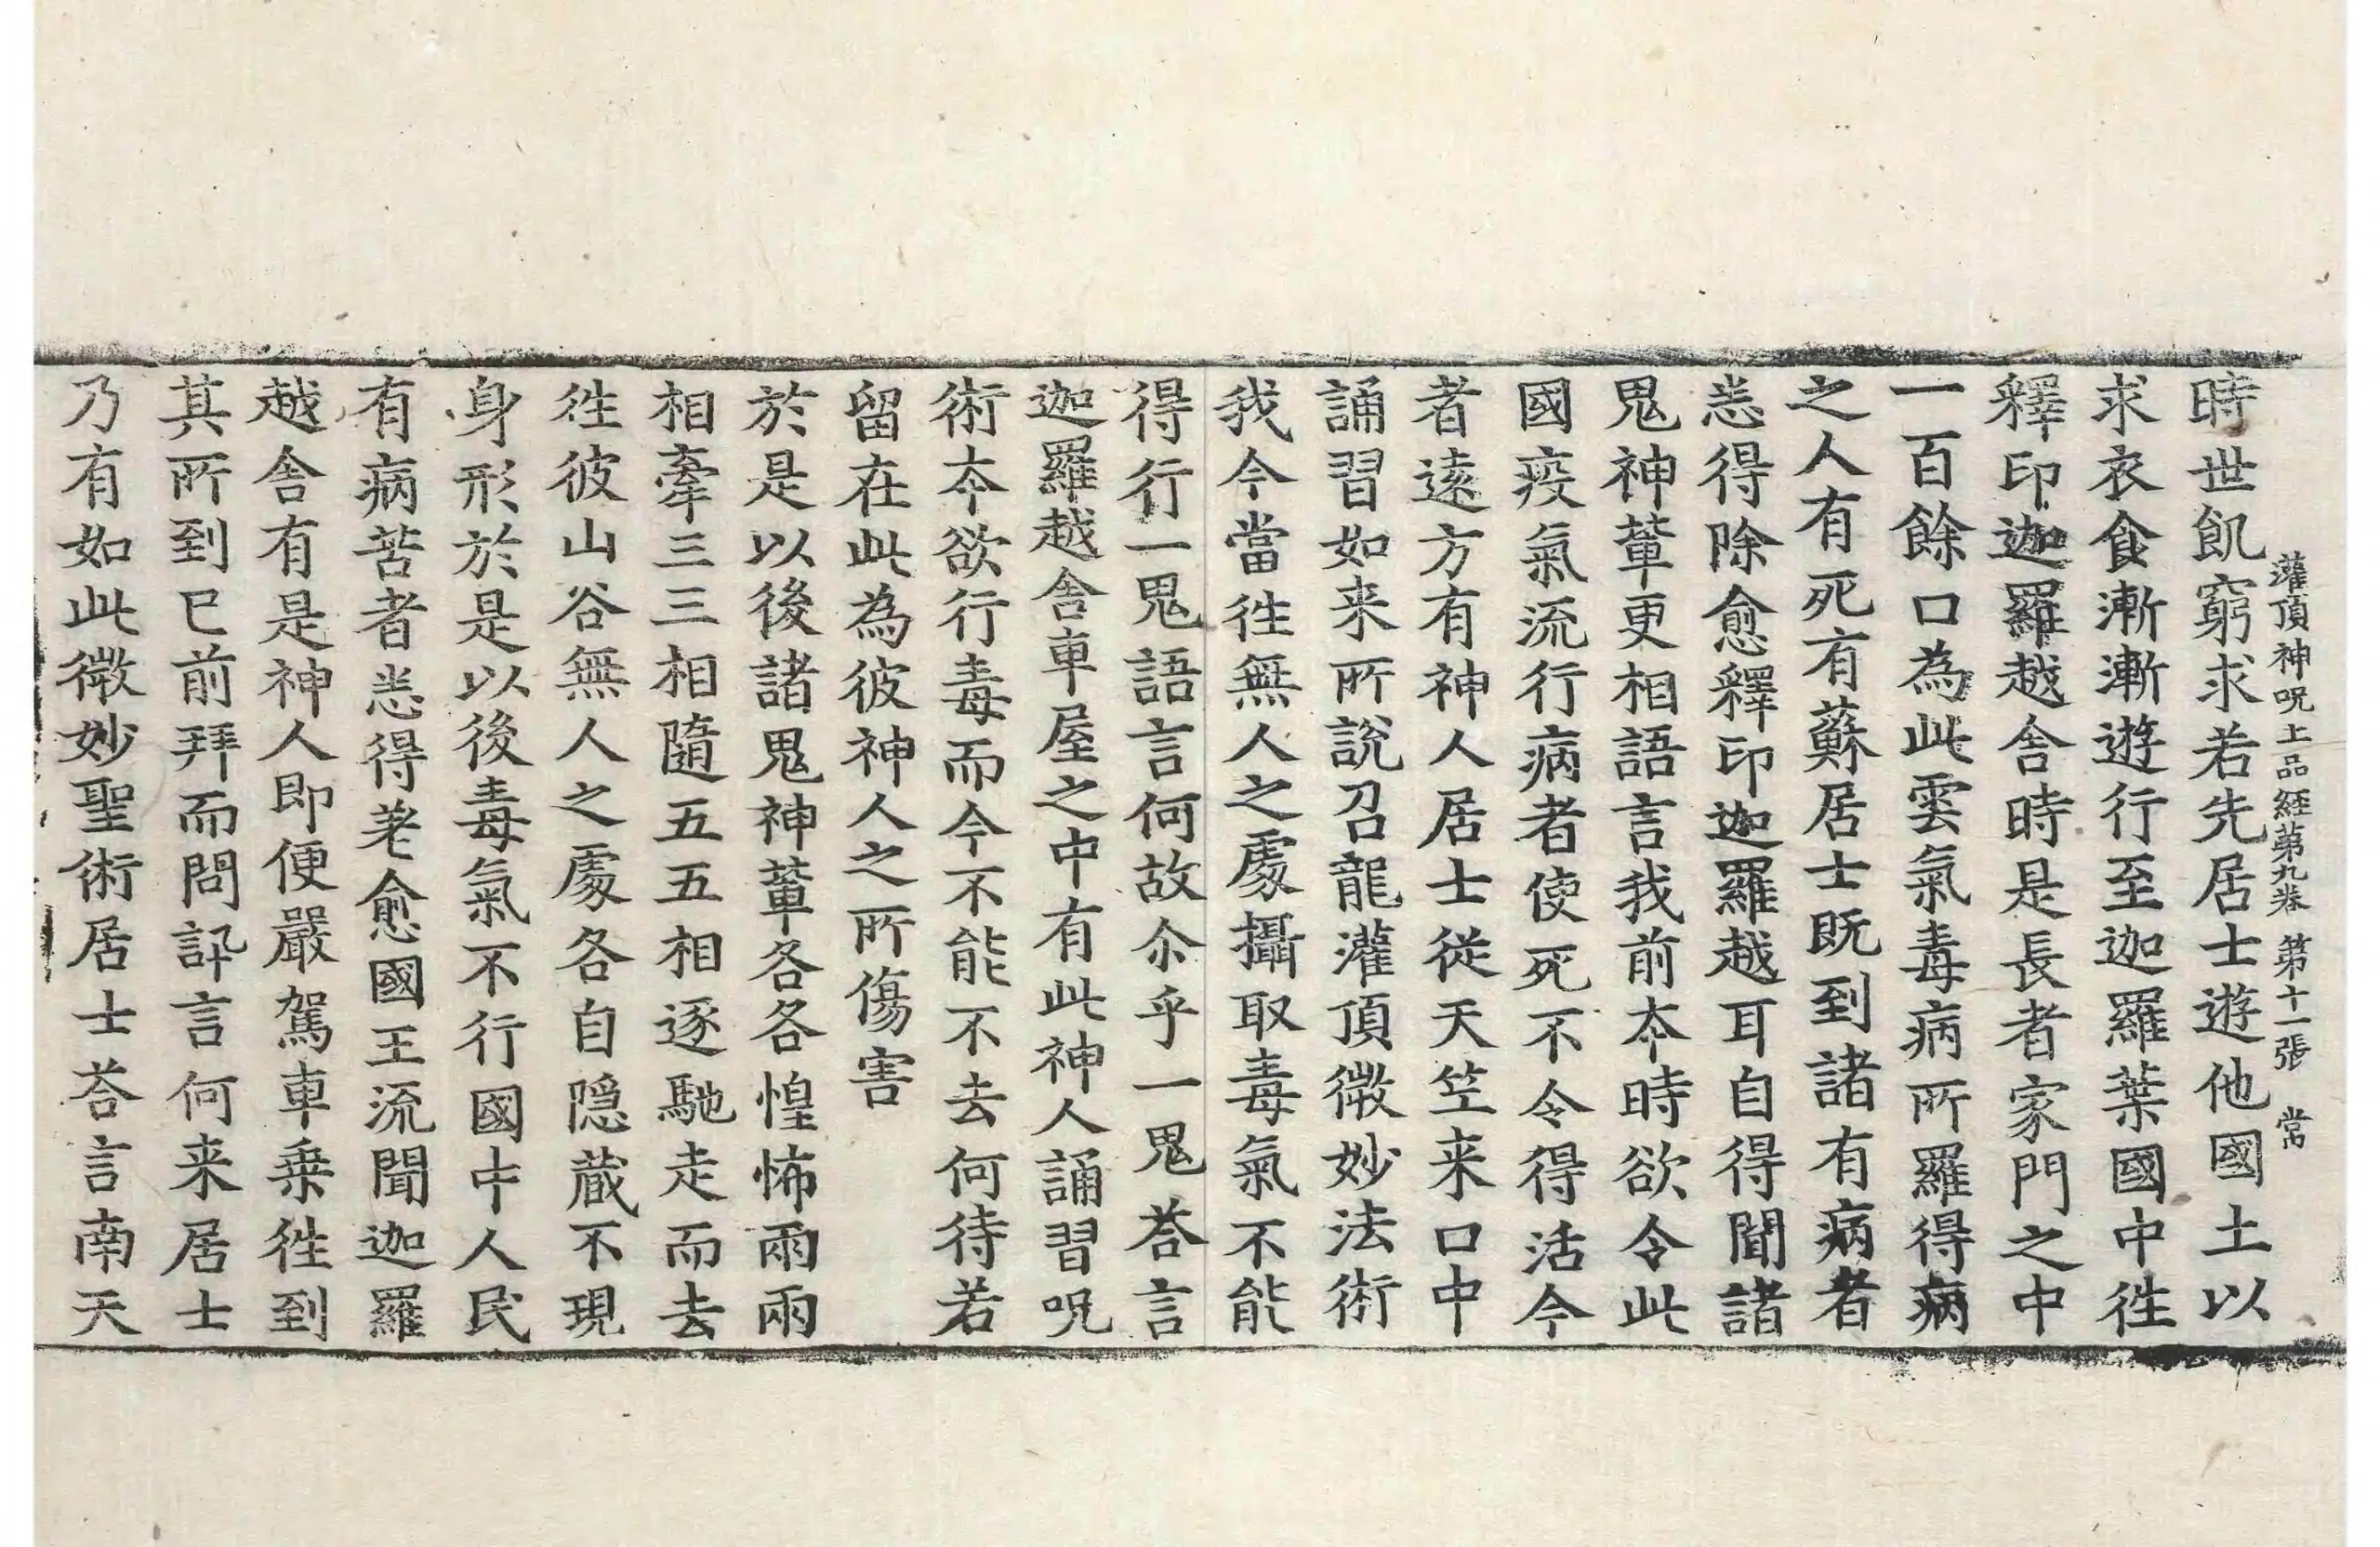 灌頂神呪上品経第九卷　第十一張　常
時世飢窮求若先居士遊他國土以
求衣食漸漸遊行至迦羅葉國中徃
釋印迦羅越舎時是長者家門之中
一百餘口為此雲氣毒病所羅得病
之人有死有蘇居士既到諸有病者
恙得除愈釋印迦羅越耳自得聞諸
鬼神軰更相語言我前夲時欲令此
國疫氣流行病者使死不令得活今
者逺方有神人居士従天竺来口中
誦習如来所説召龍灌頂微妙法術
我今當徃無人之處攝取毒氣不能
得行一鬼語言何故尒乎一鬼荅言
迦羅越舎車屋之中有此神人誦習呪
術夲欲行毒而今不能不去何待若
留在此為彼神人之所傷害
於是以後諸鬼神軰各各惶怖兩兩
相牽三三相隨五五相逐馳走而去
徃彼山谷無人之處各自隠蔵不現
身形於是以後毒氣不行國中人民
有病苦者恙得差愈國王流聞迦羅
越舎有是神人即便嚴駕車乗徃到
其所到已前拜而問訊言何来居士
乃有如此微妙聖術居士荅言南天